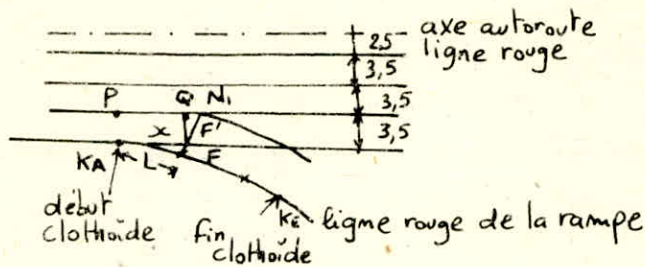 axe autoroute
2,5
ligne rouge
3,5
3,5
P Q N₁
3,5
x F'
KA L F
début
clothoïde
fin
clothoïde
KE ligne rouge de la rampe